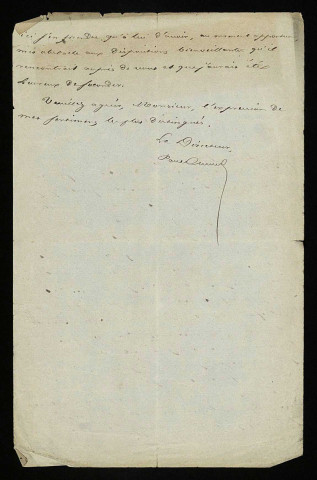 qu'à lui d'avoir, au moment
mis obstacle aux dispositions bienveillantes qu'il
rencontrait auprès de vous et que j'aurais été
heureux de seconder.
Veuillez agréer, Monsieur, l'expression de
mes sentiments les plus distingués.
Le Directeur,